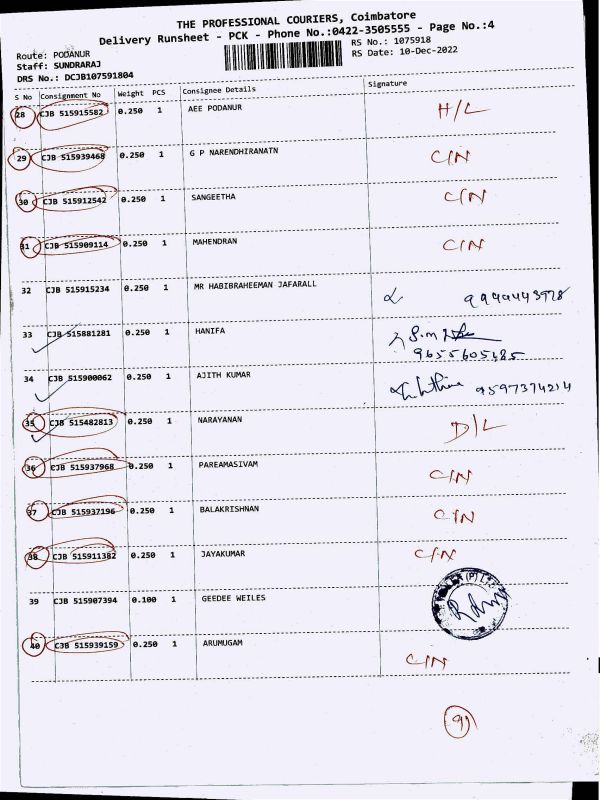 THE PROFESSIONAL COURIERS, Coimbatore
Delivery Runsheet - PCK - Phone No.:0422-3505555 - Page No.:4
Route: PODANUR
Staff: SUNDRARAJ
DRS No.: DCJB107591804
RS No.: 1075918
RS Date: 10-Dec-2022
S No Consignment No Weight PCS Consignee Details Signature
28 CJB 515915582 0.250 1 AEE PODANUR H/L
29 CJB 515939468 0.250 1 G P NARENDHIRANATN C/N
30 CJB 515912542 0.250 1 SANGEETHA C/N
31 CJB 515909114 0.250 1 MAHENDRAN C/N
32 CJB 515915234 0.250 1 MR HABIBRAHEEMAN JAFARALL
33 CJB 515881281 0.250 1 HANIFA
9655605485
34 CJB 515900062 0.250 1 AJITH KUMAR 9597374214
35 CJB 515482813 0.250 1 NARAYANAN D/L
36 CJB 515937968 0.250 1 PAREAMASIVAM C/N
37 CJB 515937196 0.250 1 BALAKRISHNAN C/N
38 CJB 515911382 0.250 1 JAYAKUMAR C/N
39 CJB 515907394 0.100 1 GEEDEE WEILES (P)
40 CJB 515939159 0.250 1 ARUMUGAM C/N